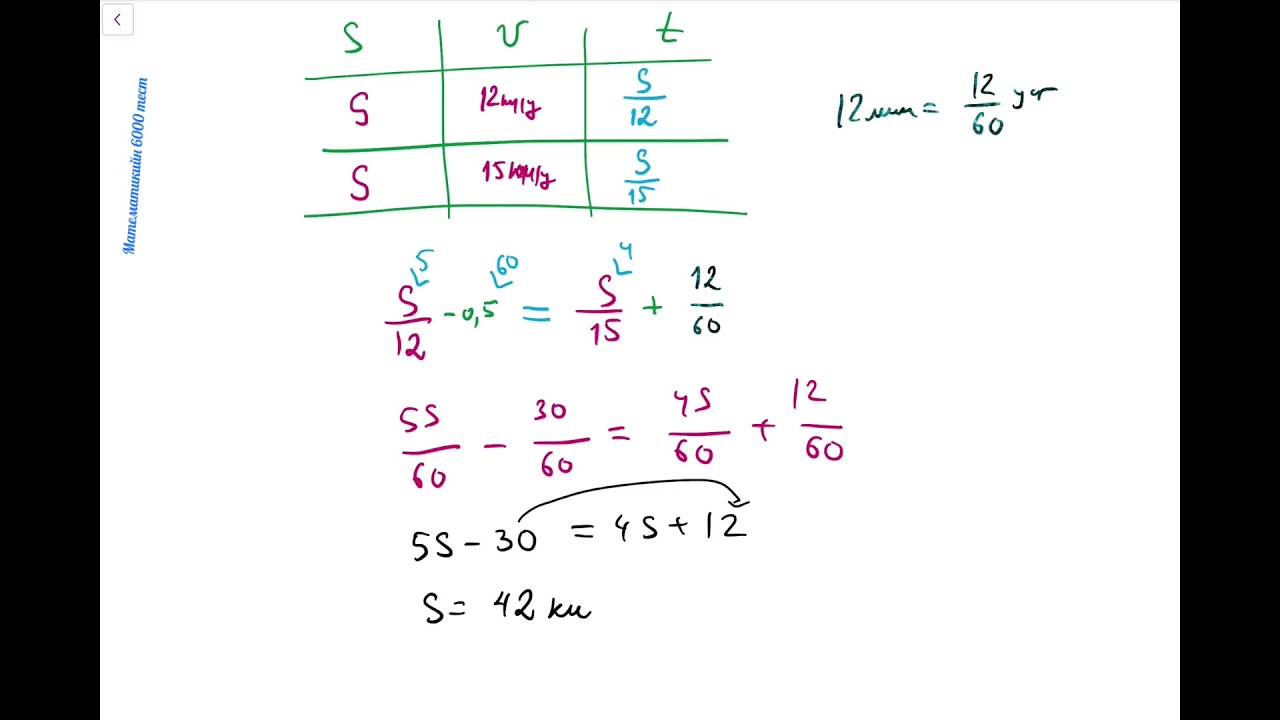 Математикийн 6000 тест
S v t
S 12км/у S/12
S 15км/у S/15
12мин = 12/60 
5 60 4
S/12 - 0,5 = S/15 + 12/60
5S/60 - 30/60 = 4S/60 + 12/60
5S - 30 = 4S + 12
S = 42 км